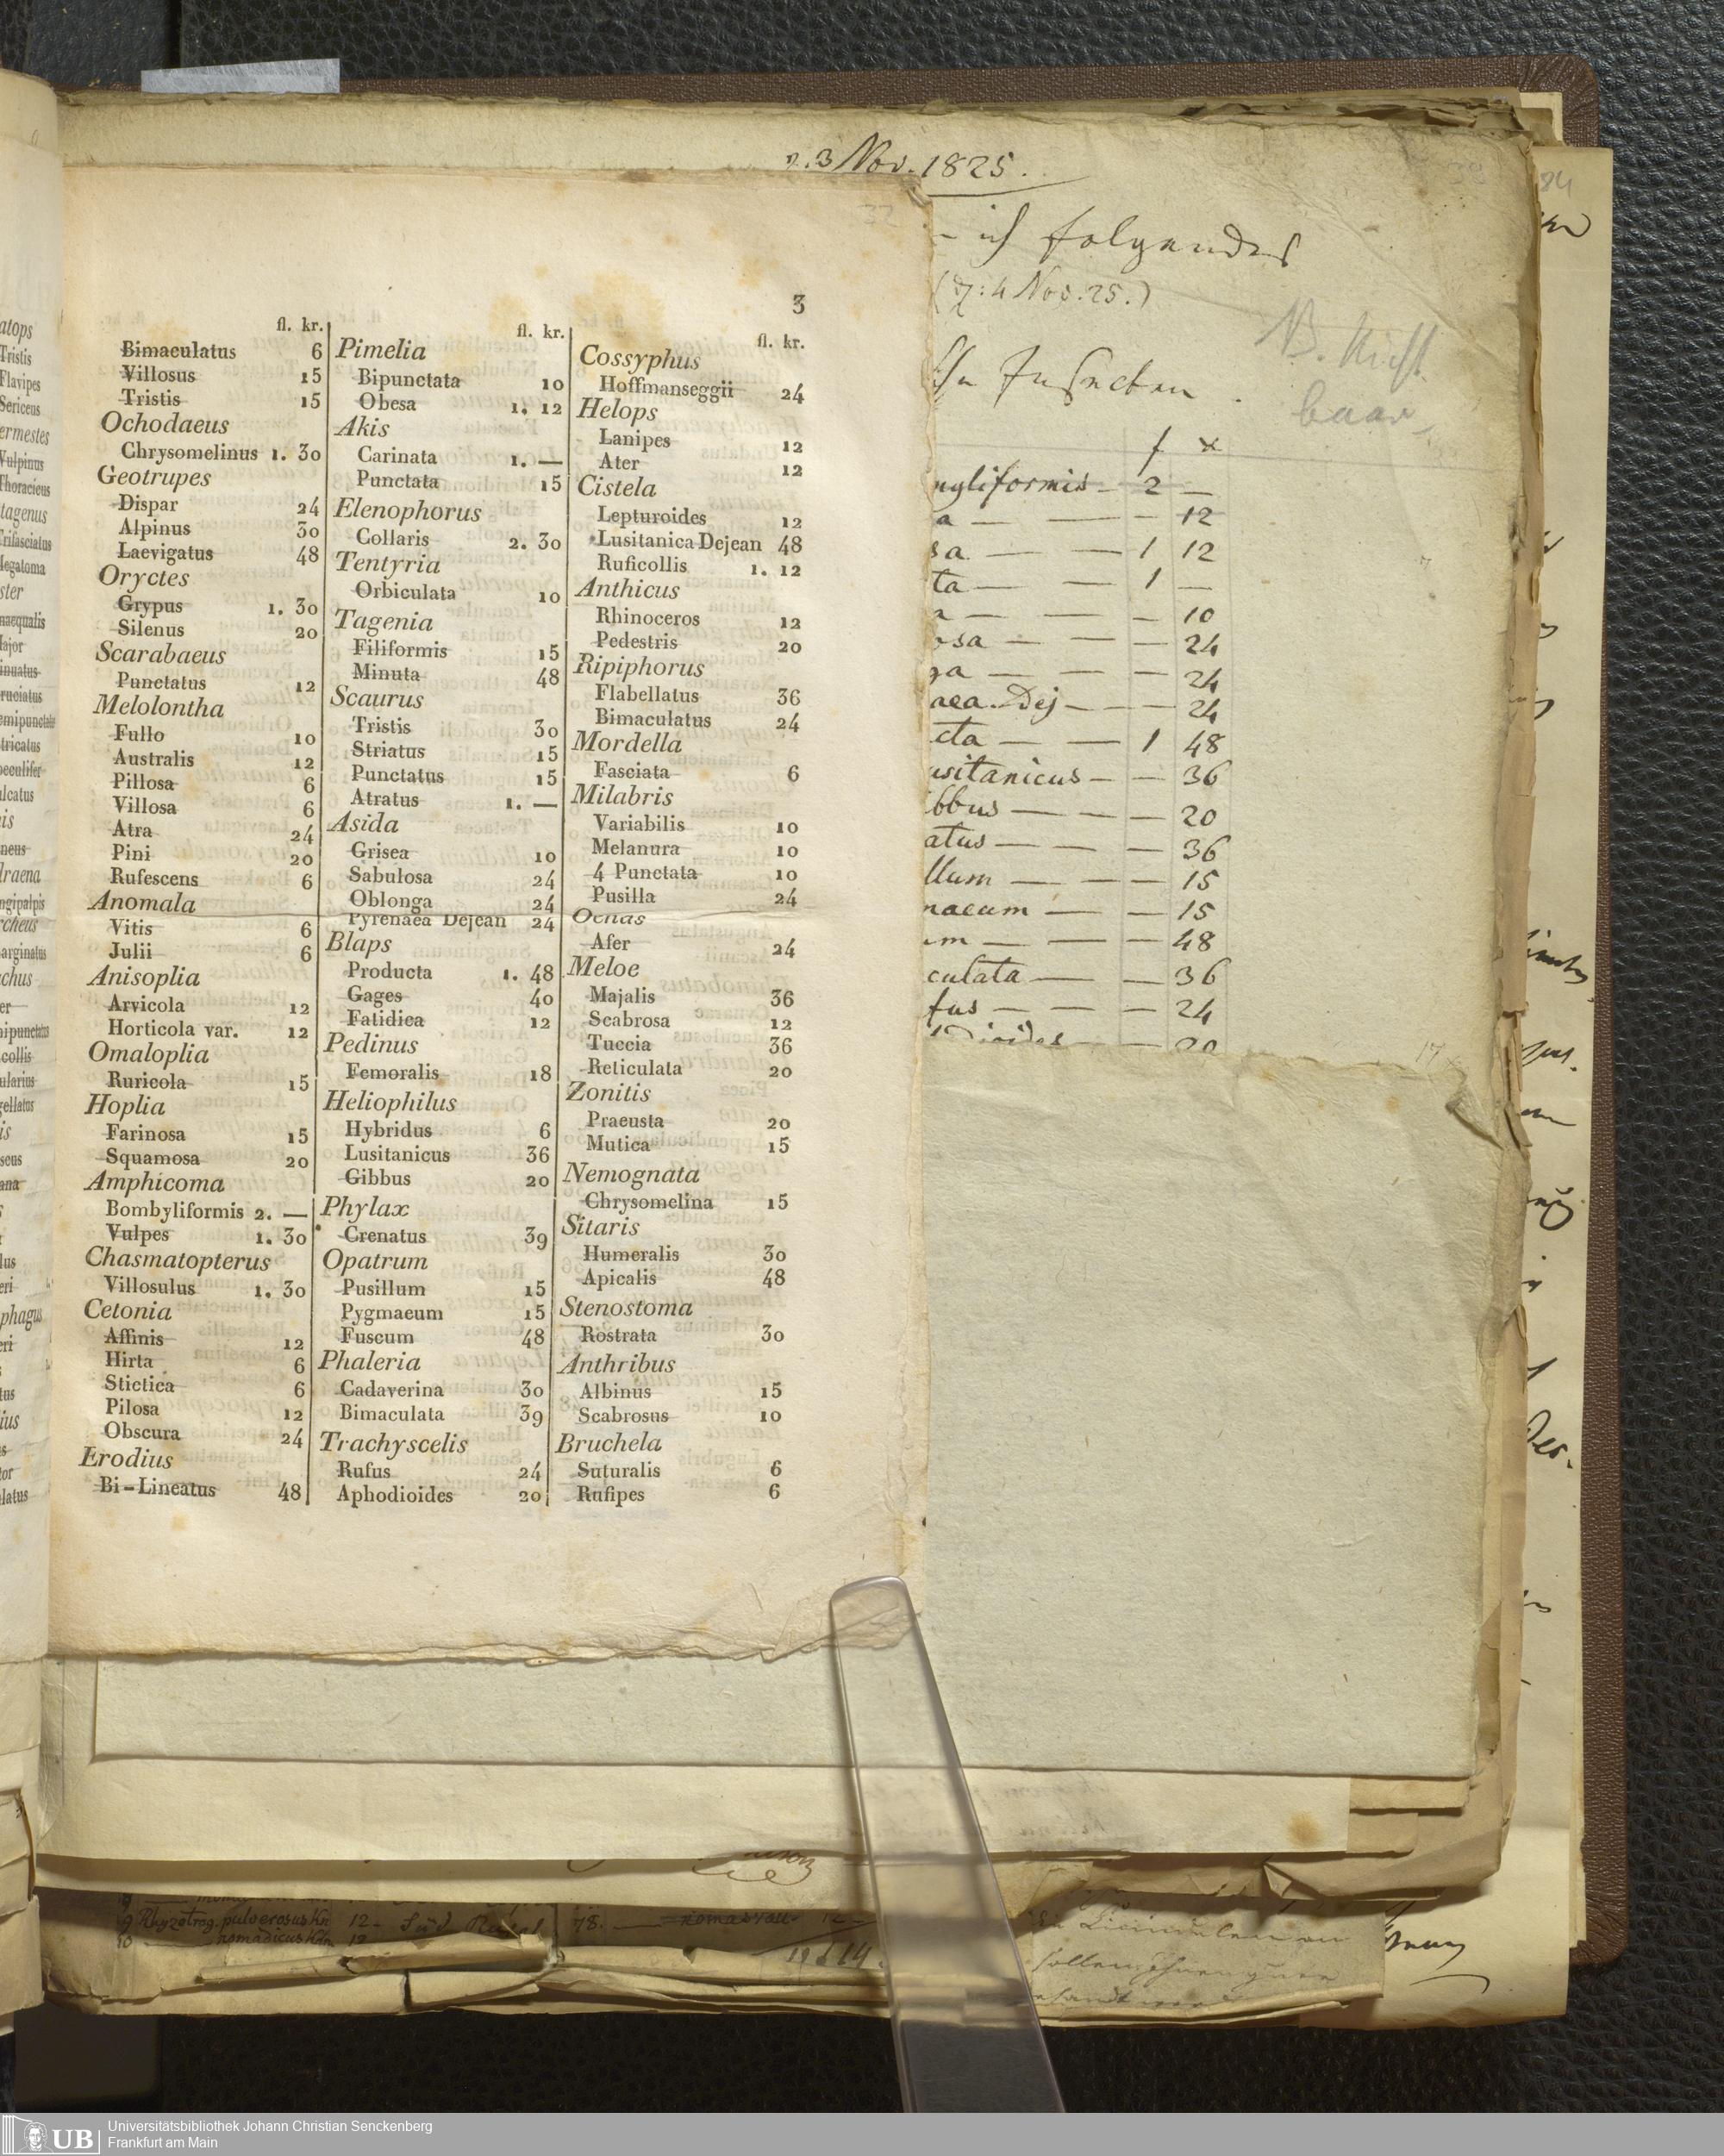 3
fl. kr.
Bimaculatus 6
Villosus 15
Tristis 15
Ochodaeus
Chrysomelinus 1. 30
Geotrupes
Dispar 24
Alpinus 30
Laevigatus 48
Oryctes
Grypus 1. 30
Silenus 20
Scarabaeus
Punctatus 12
Melolontha
Fullo 10
Australis 12
Pillosa 6
Villosa 6
Atra 24
Pini 20
Rufescens 6
Anomala
Vitis 6
Julii 6
Anisoplia
Arvicola 12
Horticola var. 12
Omaloplia
Ruricola 15
Hoplia
Farinosa 15
Squamosa 20
Amphicoma
Bombyliformis 2. —
Vulpes 1. 30
Chasmatopterus
Villosulus 1. 30
Cetonia
Affinis 12
Hirta 6
Stictica 6
Pilosa 12
Obscura 24
Erodius
Bi-Lineatus 48
fl. kr.
Pimelia
Bipunctata 10
Obesa 1. 12
Akis
Carinata 1. —
Punctata 15
Elenophorus
Collaris 2. 30
Tentyria
Orbiculata 10
Tagenia
Filiformis 15
Minuta 48
Scaurus
Tristis 30
Striatus 15
Punctatus 15
Atratus 1. —
Asida
Grisea 10
Sabulosa 24
Oblonga 24
Pyrenaea Dejean 24
Blaps
Producta 1. 48
Gages 40
Fatidica 12
Pedinus
Femoralis 18
Heliophilus
Hybridus 6
Lusitanicus 36
Gibbus 20
Phylax
Crenatus 39
Opatrum
Pusillum 15
Pygmaeum 15
Fuscum 48
Phaleria
Cadaverina 30
Bimaculata 39
Trachyscelis
Rufus 24
Aphodioides 20
fl. kr.
Cossyphus
Hoffmanseggii 24
Helops
Lanipes 12
Ater 12
Cistela
Lepturoides 12
Lusitanica Dejean 48
Ruficollis 1. 12
Anthicus
Rhinoceros 12
Pedestris 20
Ripiphorus
Flabellatus 36
Bimaculatus 24
Mordella
Fasciata 6
Milabris
Variabilis 10
Melanura 10
4 Punctata 10
Pusilla 24
Oenas
Afer 24
Meloe
Majalis 36
Scabrosa 12
Tuccia 36
Reticulata 20
Zonitis
Praeusta 20
Mutica 15
Nemognata
Chrysomelina 15
Sitaris
Humeralis 30
Apicalis 48
Stenostoma
Rostrata 30
Anthribus
Albinus 15
Scabrosus 10
Bruchela
Suturalis 6
Rufipes 6
32
3 Nov. 1825.
ich folgendes
4 Nov. 25.)
Insecten
baar
f x
yliformis — 2 —
a — — — 12
sa — — 1 12
ta — — 1 —
a — — — 10
osa — — — 24
ga — — — 24
aea. Dej — — — 24
cta — — 1 48
usitanicus — — 36
bbus — — — 20
atus — — — 36
llum — — — 15
maeum — — 15
um — — — 48
culata — — 36
fus — — — 24
dioides — 20
84
atops
Tristis
Flavipes
Sericeus
ermestes
Vulpinus
Thoracicus
tagenus
rifasciatus
egatoma
ster
naequalis
ajor
inuatus
ruciatus
emipunctatus
tricatus
ulcatus
is
neus
draena
ngipalpis
cheus
arginatus
chus
er
collis
ularius
gellatus
is
seus
ana
lus
eri
phagus
eri
tus
ius
tor
latus
9 Rhyzotrog. pulverosus Kn 12 -
10 — nomadicus Kn 12
78.
Universitätsbibliothek Johann Christian Senckenberg
Frankfurt am Main
UB